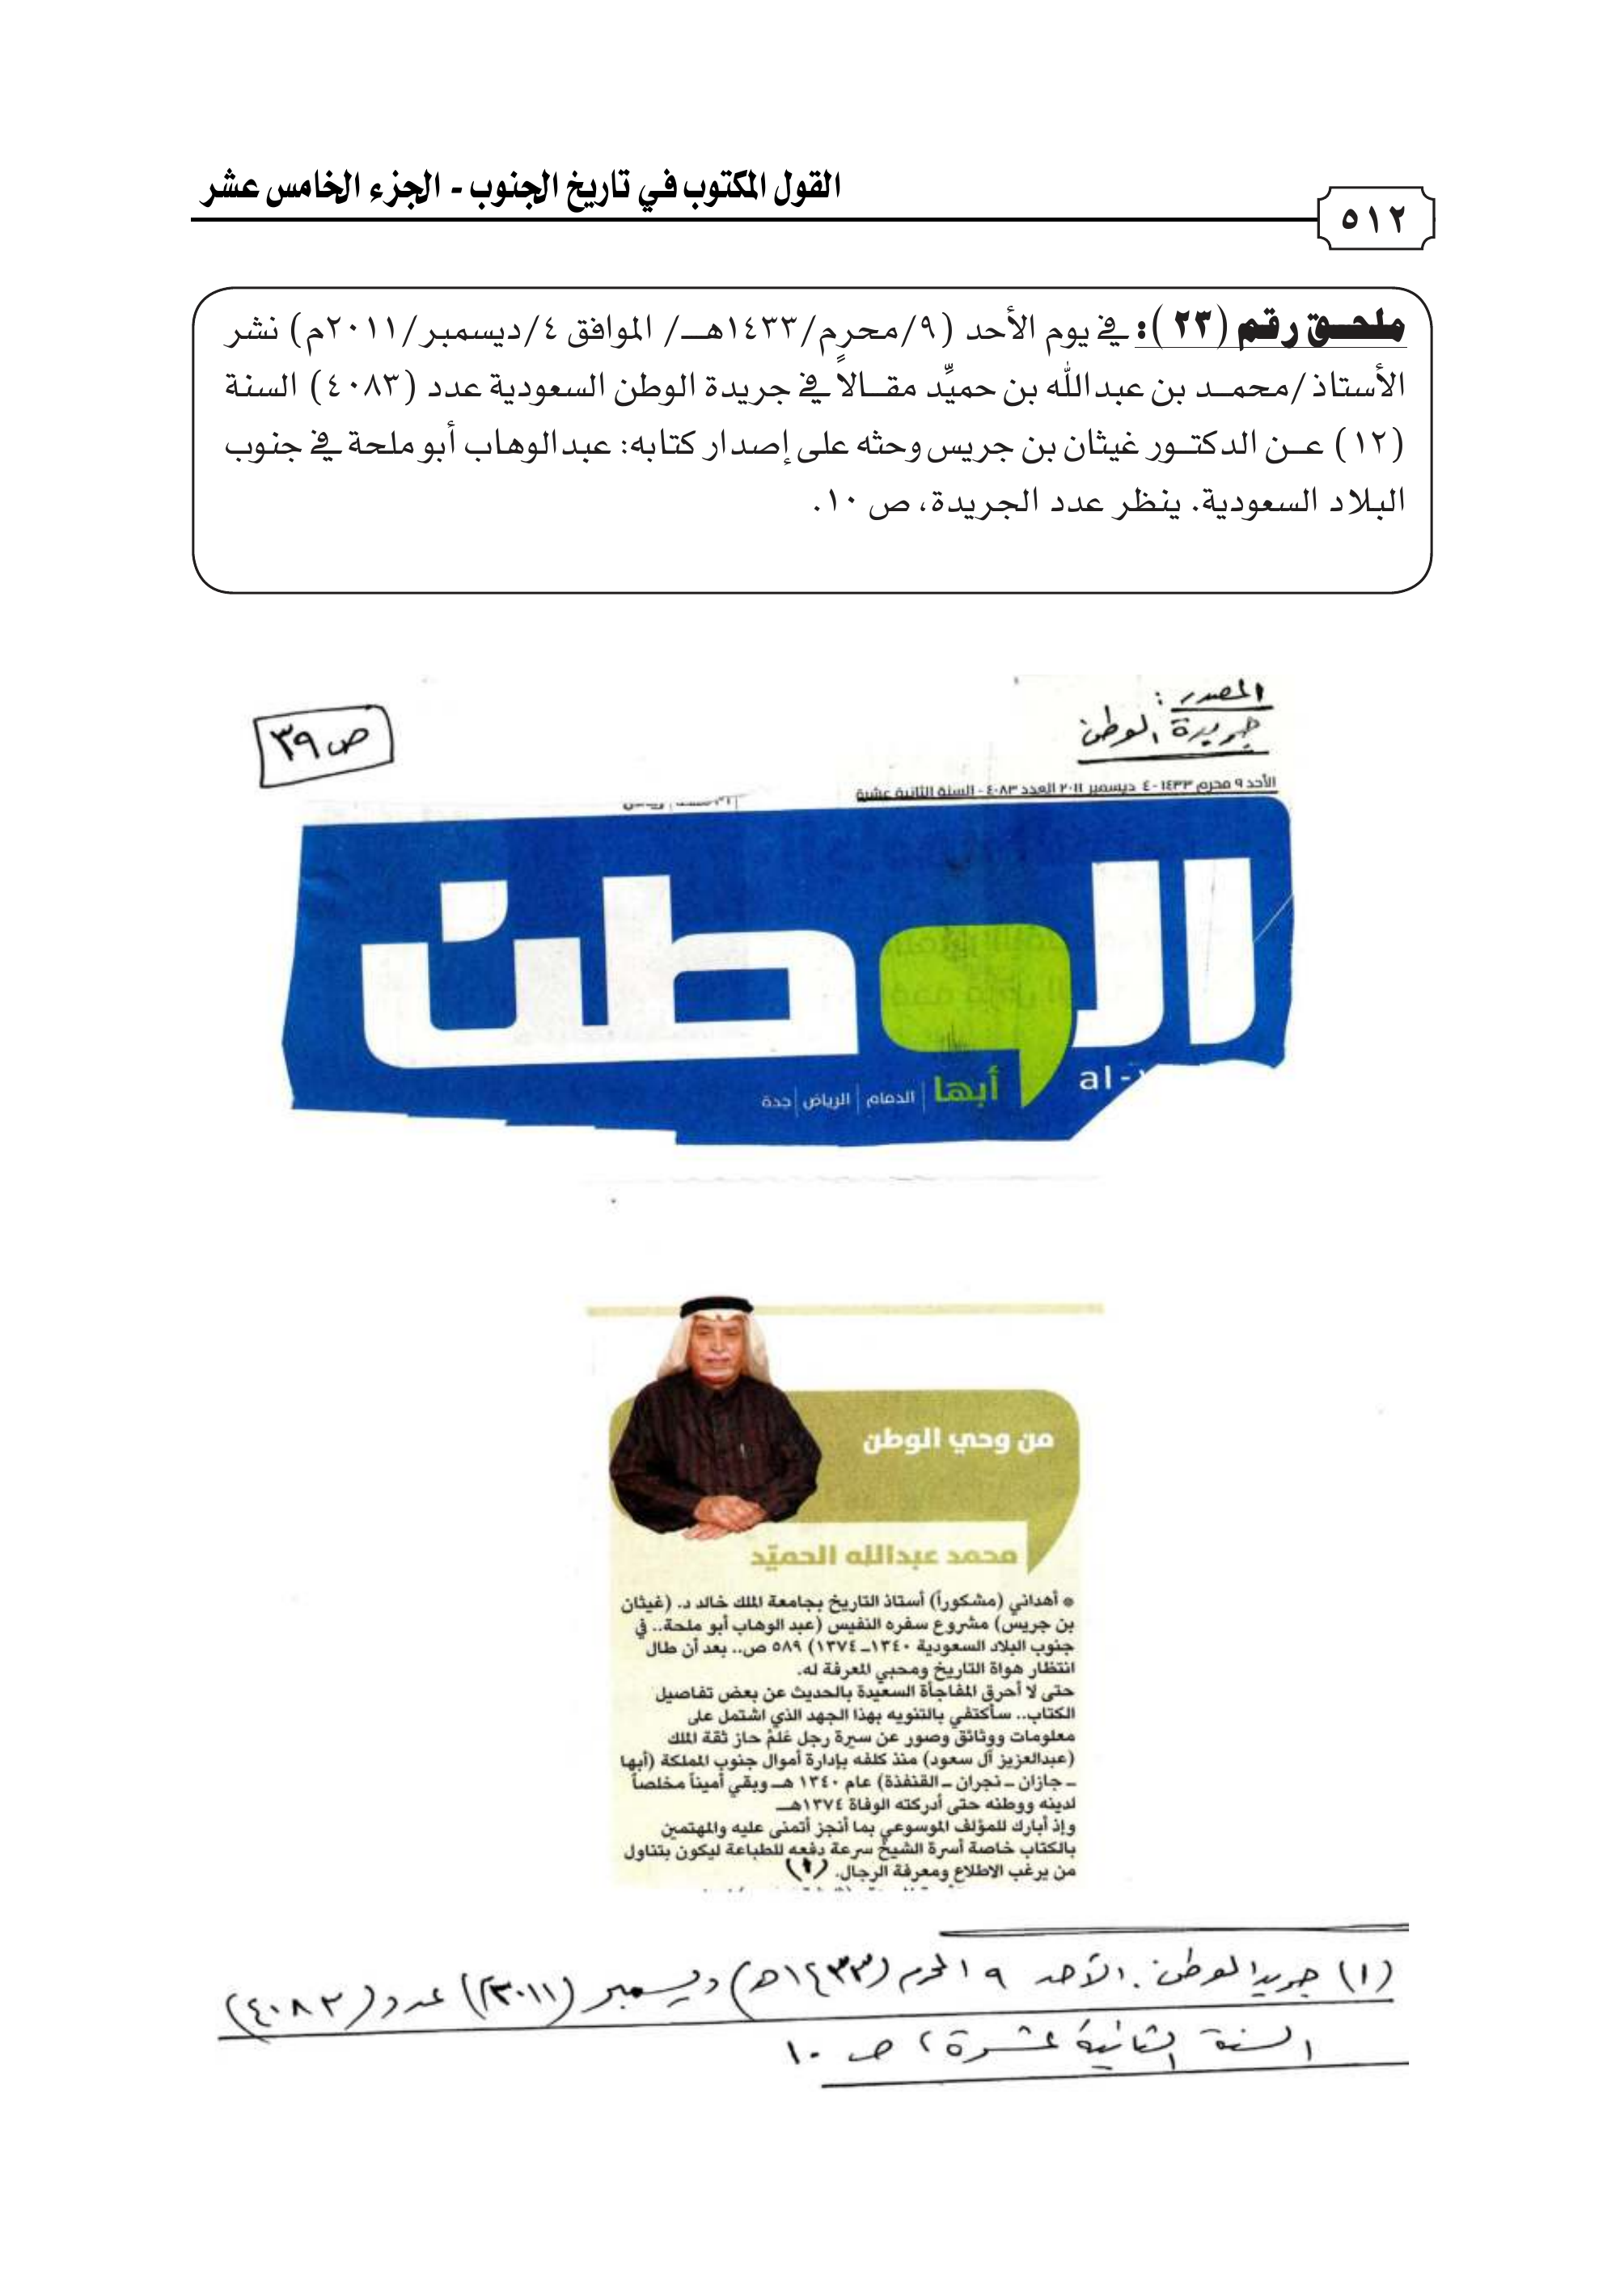 القول المكتوب في تاريخ الجنوب - الجزء الخامس عشر
٥١٢
ملحـــق رقم (٢٣): في يوم الأحد (٩/محرم/١٤٣٣هــ/ الموافق ٤/ديسمبر/٢٠١١م) نشر
الأستاذ/محمــد بن عبدالله بن حميِّد مقــالاً في جريدة الوطن السعودية عدد (٤٠٨٣) السنة
(١٢) عــن الدكتــور غيثان بن جريس وحثه على إصدار كتابه: عبدالوهاب أبو ملحة في جنوب
البلاد السعودية. ينظر عدد الجريدة، ص ١٠.
المصدر:
جريدة الوطن
ص٣٩
الأحد ٩ محرم ١٤٣٣ - ٤ ديسمبر ٢٠١١ العدد ٤٠٨٣ - السنة الثانية عشرة
الوطن
al-
أبها | الدمام | الرياض | جدة
من وحي الوطن
محمد عبدالله الحميّد
* أهداني (مشكوراً) أستاذ التاريخ بجامعة الملك خالد د. (غيثان
بن جريس) مشروع سفره النفيس (عبد الوهاب أبو ملحة.. في
جنوب البلاد السعودية ١٣٤٠ـ ١٣٧٤) ٥٨٩ ص.. بعد أن طال
انتظار هواة التاريخ ومحبي المعرفة له.
حتى لا أحرق المفاجأة السعيدة بالحديث عن بعض تفاصيل
الكتاب.. سأكتفي بالتنويه بهذا الجهد الذي اشتمل على
معلومات ووثائق وصور عن سيرة رجل عَلَمْ حاز ثقة الملك
(عبدالعزيز آل سعود) منذ كلفه بإدارة أموال جنوب المملكة (أبها
ـ جازان ـ نجران ـ القنفذة) عام ١٣٤٠ هـ وبقي أميناً مخلصاً
لدينه ووطنه حتى أدركته الوفاة ١٣٧٤هـ
وإذ أبارك للمؤلف الموسوعي بما أنجز أتمنى عليه والمهتمين
بالكتاب خاصة أسرة الشيخ سرعة دفعه للطباعة ليكون بتناول
من يرغب الاطلاع ومعرفة الرجال. (١)
(١) جريدة الوطن. الأحد ٩ المحرم (١٤٣٣هـ) ديسمبر (٢٠١١م) عدد (٤٠٨٣)
السنة الثانية عشرة، ص ١٠